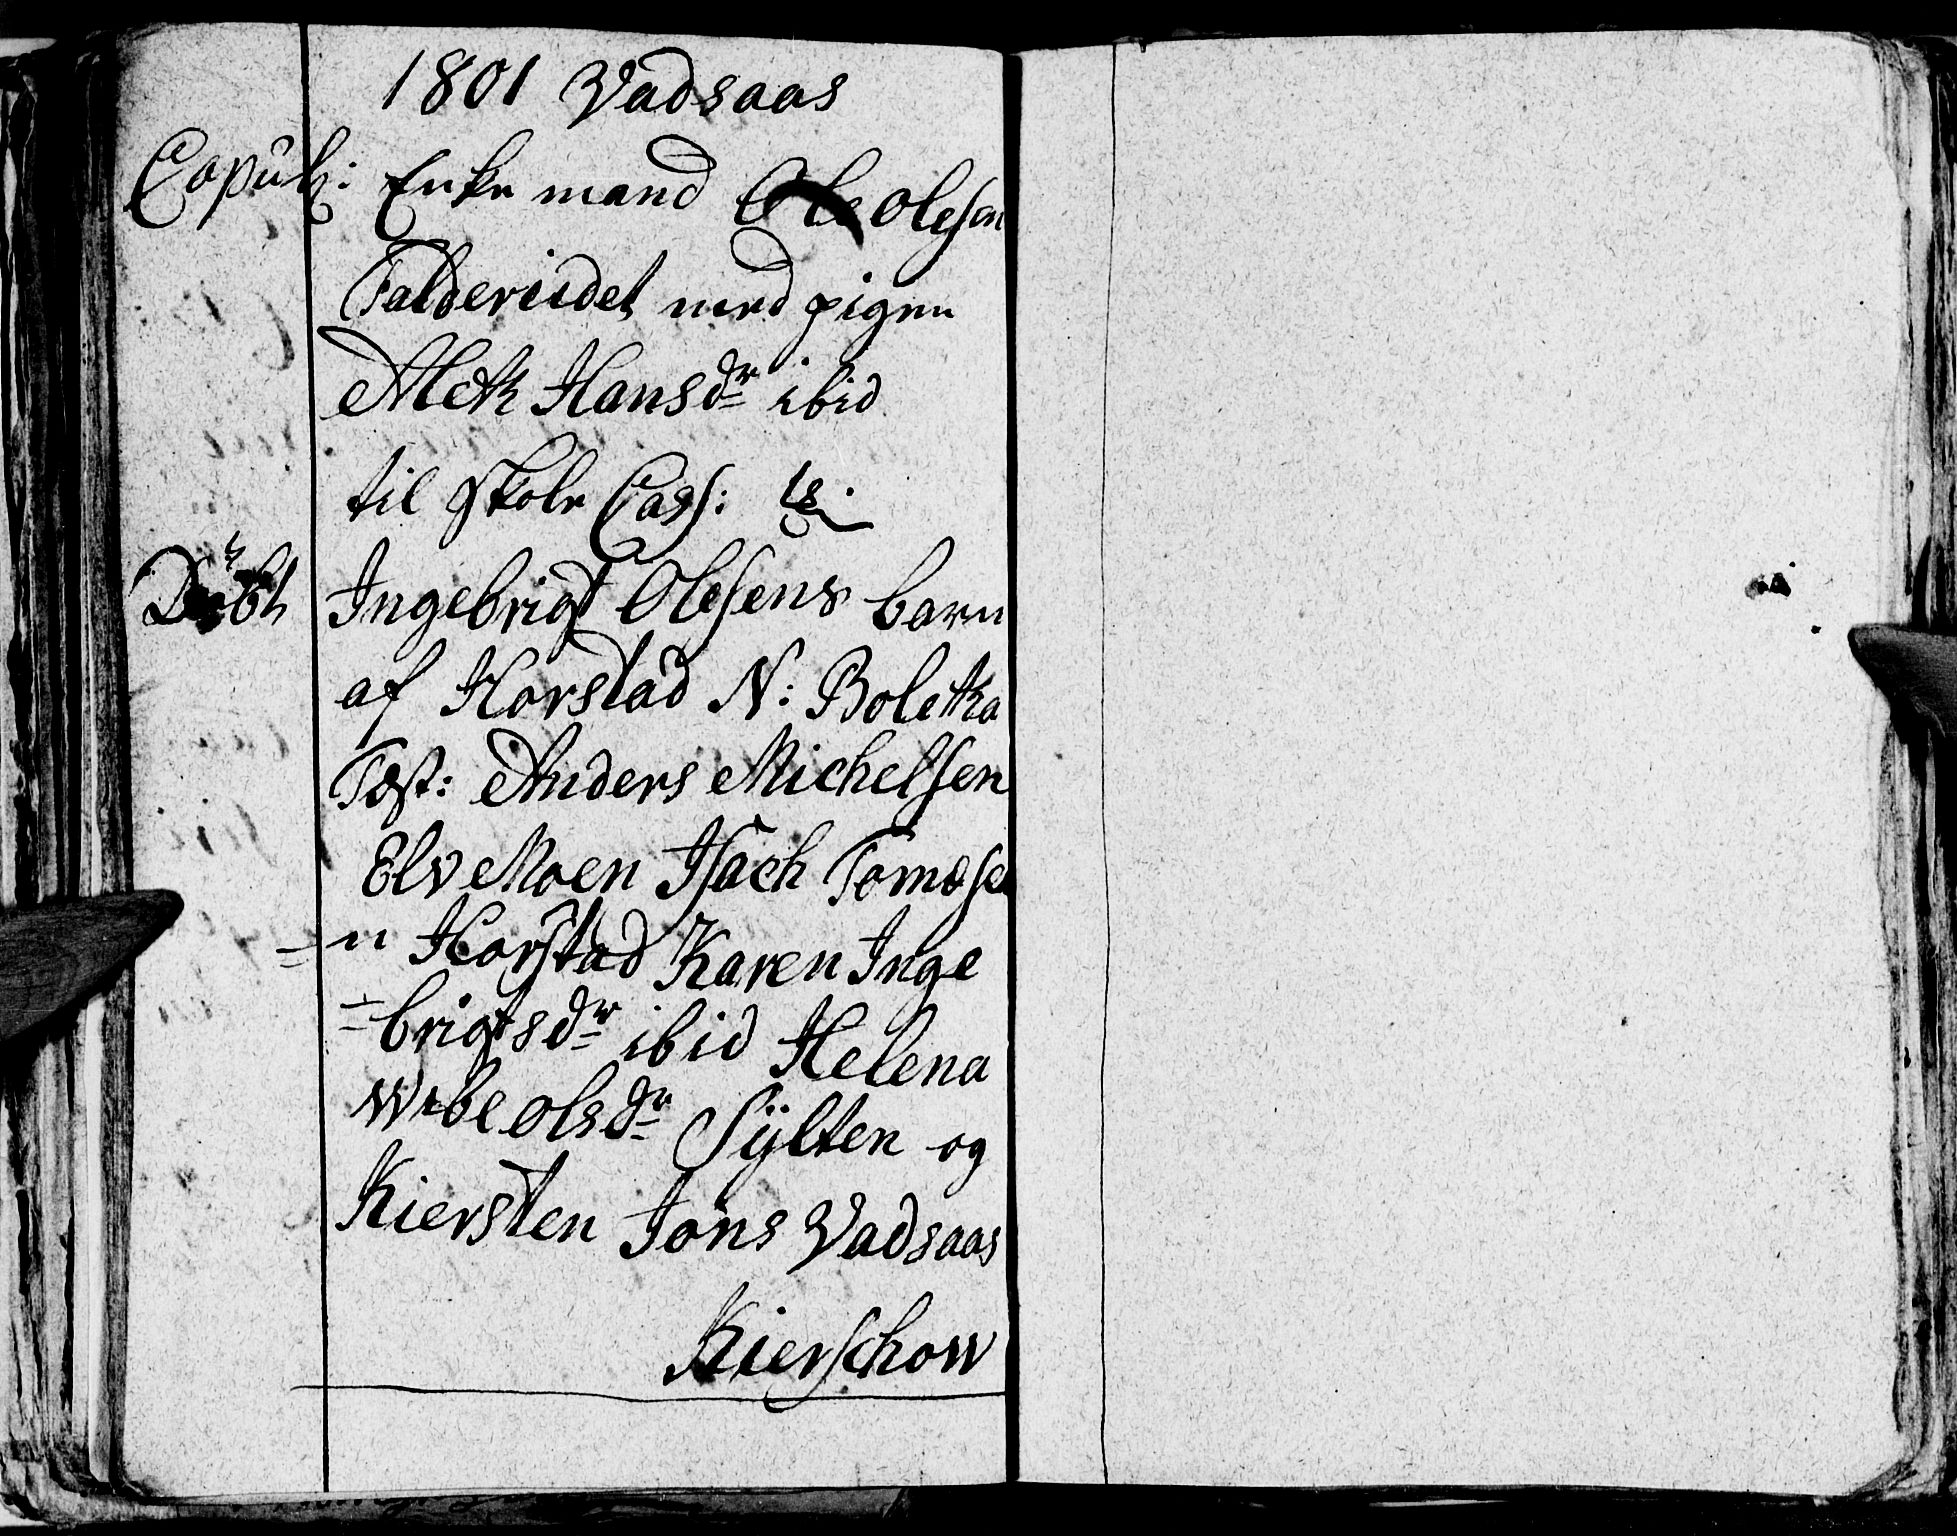 1801 Vadsaas
Copul: Enke mand Ole Olesen
Falderiidet med pigen
Metk Hansdr ibid
til skole Cass:
Döbt Ingebrigt Olesens barn
af Horstad N: Boletka
Test: Anders Michelsen
Elv Moen Isach Tomæse
=n Horstad Karen Inge
=brigtsdr ibid Helena
Wibe Olsdr Sÿlten og
Kiersten Jons Vadsaas
Kierschow